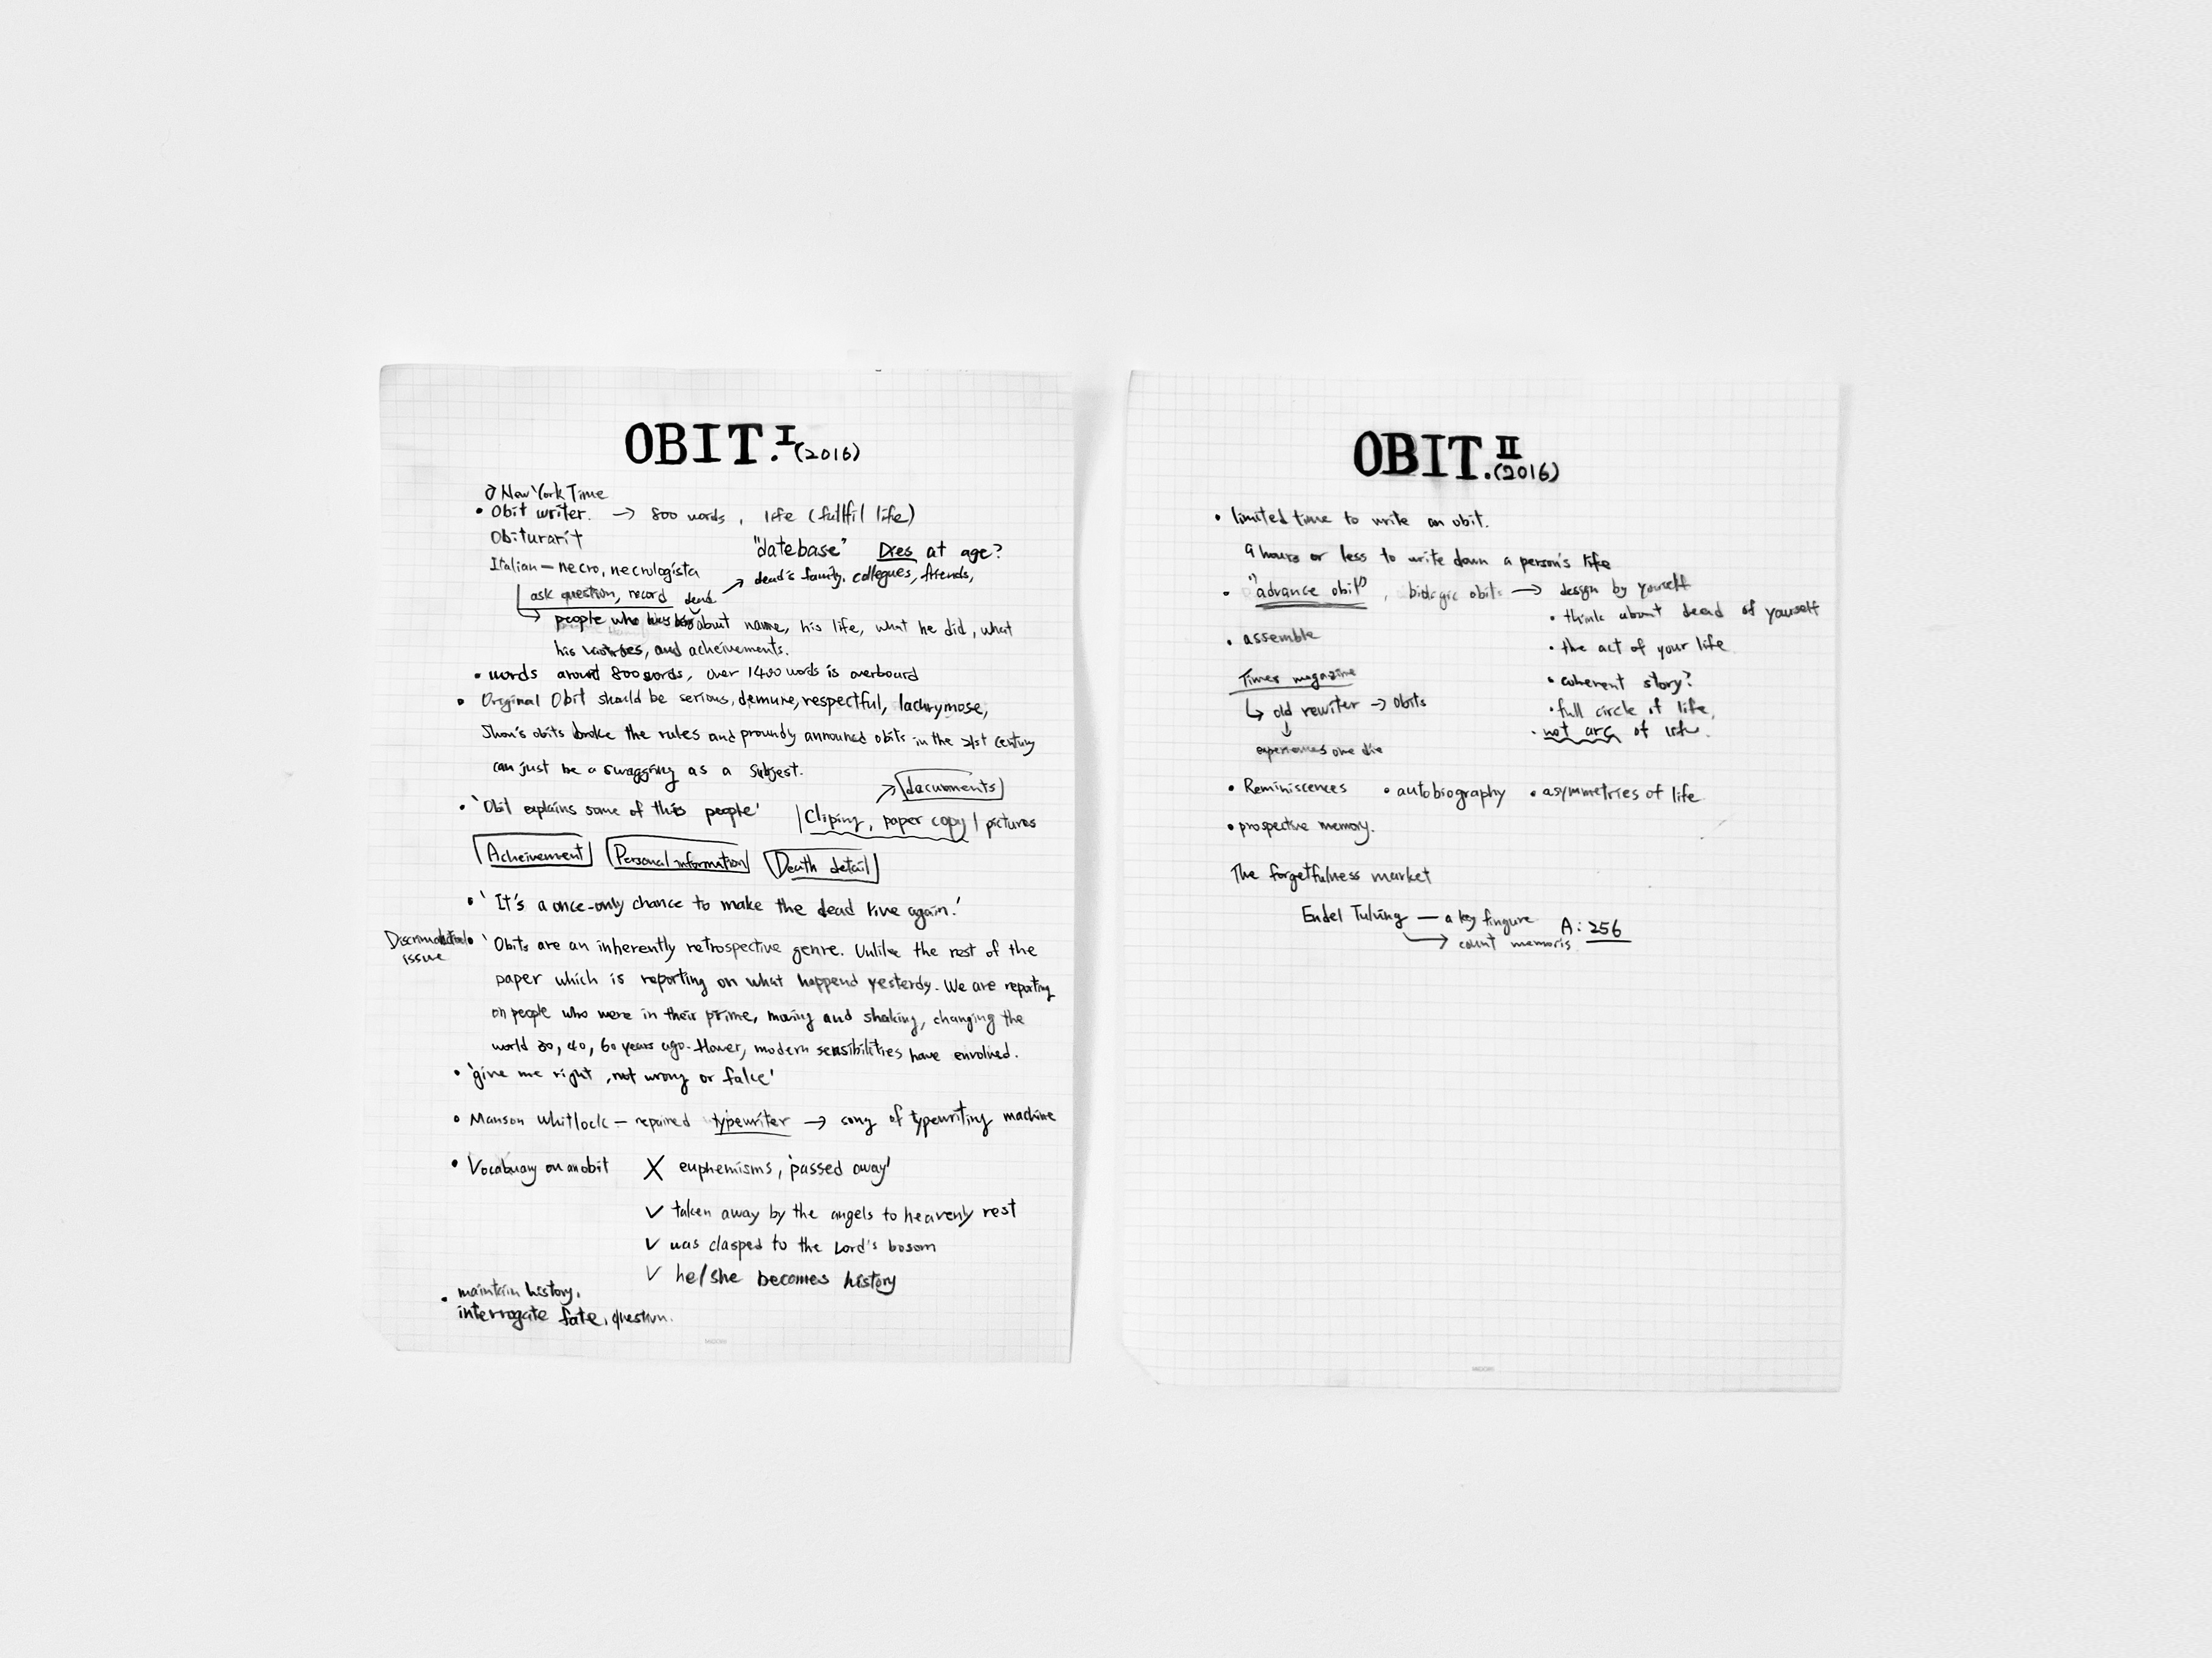 OBIT. I (2016)
New York Time
• Obit writer. → 800 words, life (fullfil life)
Obiturarit
"datebase" Dies at age?
Italian — necro, necrologista
→ dead's family, collegues, friends,
ask question, record dead
→ people who about name, his life, what he did, what
his, and acheivements.
• words around 800 words, over 1400 words is overboard
• Original Obit should be serious, demure, respectful, lachrymose,
Jhon's obits broke the rules and proundy announed obits in the 21st century
can just be a swagging as a subject.
→ documents
• 'Obit explains some of this people'
Cliping, paper copy | pictures
Acheivement Personal information Death detail
• 'It's a once-only chance to make the dead live again.'
issue
• 'Obits are an inherently retrospective genre. Unlike the rest of the
paper which is reporting on what happend yesterdy. We are reporting
on people who were in their prime, moving and shaking, changing the
world 30, 40, 60 years ago. Hower, modern sensibilities have envolved.
• 'give me right, not wrong or false'
• Manson Whitlock — repaired typewriter → song of typewriting machine
• Vocabuary on an obit X euphemisms, 'passed away'
✓ taken away by the angels to heavenly rest
✓ was clasped to the Lord's bosom
✓ he/she becomes history
• maintain history,
interrogate fate, question.
MIDORI
OBIT. II (2016)
• limited time to write an obit.
9 hours or less to write down a person's life
• "advance obit", obits → design by yourself
• think about dead of yourself
• assemble
• the act of your life
Times magazine
• coherent story?
↳ old rewriter → obits
• full circle of life,
• not arc of life.
↓
experiences one die
• Reminiscences • autobiography • asymmetries of life
• prospective memory.
The forgetfulness market
Endel Tulving — a key fingure A: 256
→ count memoris
MIDORI